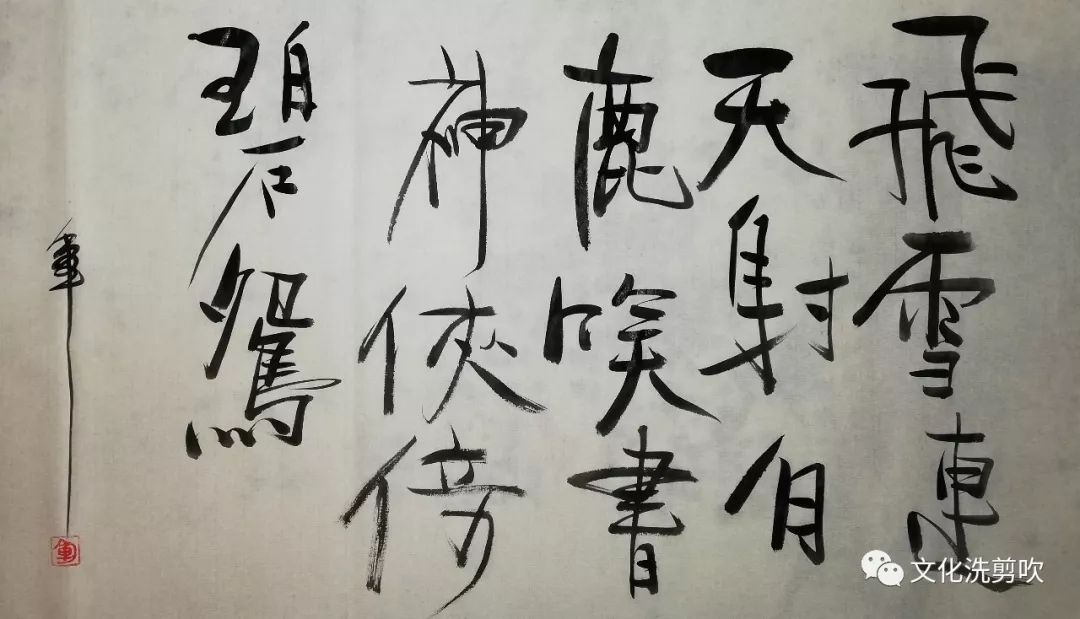 飛雪連
天射白
鹿咲書
神俠倚
碧鴛
軍
文化洗剪吹